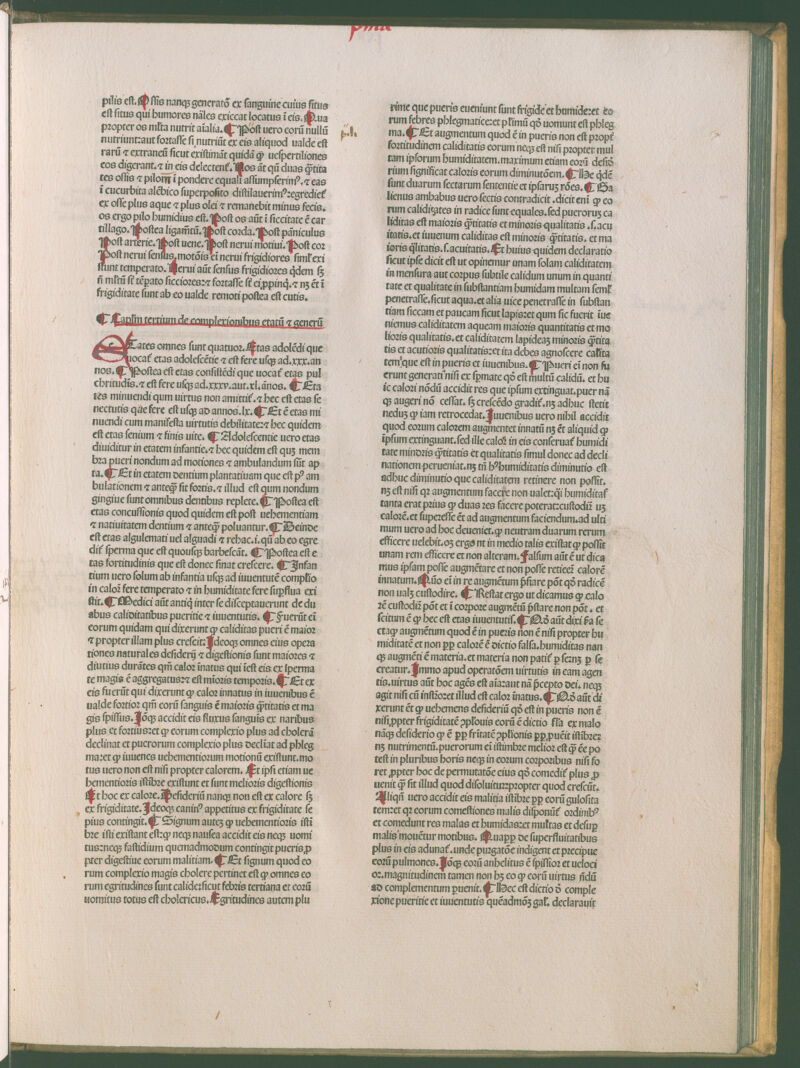 prima
pilis est. Ossis nanqȝ generatō ex sanguine cuius situs
est situs qui humores nāles exiccat locatus ī eis. Qua
propter os mĺta nutrit aīalia. ¶ Post uero corū nullū
nutriunt: aut fortasse si nutriūt ex eis aliquod ualde est
rarū ⁊ extraneū sicut existimāt quidā ꝙ uespertiliones
eos digerant. ⁊ in eis delectent᷑. Nos āt qn̄ duas q̄tita
tes ossis ⁊ pilorū ī pondere equali assumpserim᷒. ⁊ eas
ī cucurbita alēbico superposito distilauerim᷒: egrediet᷑
ex osse plus aque ⁊ plus olei ⁊ remanebit minus fecis.
os ergo pilo humidius est. Post os aūt ī siccitate ē car
tillago. Postea ligamētū. Post corda. Post pāniculus
Post arterie. Post uene. Post nerui motiui. Post cor
Post nerui sensus. motōis eī nerui frigidiores siml̄ exi
stunt temperato. Nerui aūt sensus frigidiores q̄dem sȝ
n̄ mĺtū sē tēpato sicciores: ⁊ fortasse sē eī ꝓpīnq̄. ⁊ nȝ ēt ī
frigiditate sunt ab eo ualde remoti postea est cutis.
¶ Caplm̄ tertium de complexionibus etatū ⁊ generū
ETates omnes sunt quatuor. Etas adolēdi que
uocat᷑ etas adolescētie ⁊ est fere usqȝ ad .xxx. an
nos. ¶ Postea est etas consistēdi que uocat᷑ etas pul
chritudis. ⁊ est fere usqȝ ad .xxxv. aut .xl. ānos. ¶ Eta
tes minuendi qum uirtus non amittit᷑. ⁊ hec est etas se
nectutis que fere est usqȝ ad annos .lx. ¶ Et ē etas mi
nuendi cum manifesta uirtutis debilitate: ⁊ hec quidem
est etas senium ⁊ finis uite. ¶ Adolescentie uero etas
diuiditur in etatem infantie. ⁊ hec quidem est quȝ mem
bra pueri nondum ad motiones ⁊ ambulandum sūt ap
ta. ¶ Et in etatem dentium plantatiuam que est p᷒ am
bulationem ⁊ anteq̄ sit fortis. ⁊ illud est qum nondum
gingiue sunt omnibus dentibus replete. ¶ Postea est
etas concussionis quod quidem est post uehementiam
⁊ natiuitatem dentium ⁊ anteq̄ poluantur. ¶ Deinde
est etas algulemati uel alguadi ⁊ rehac. i. qn̄ ab eo egre
dit᷑ sperma que est quousqȝ barbescāt. ¶ Postea est e
tas fortitudinis que est donec sinat crescere. ¶ Infan
tium uero solum ab infantia usqȝ ad iuuentutē complīo
in calore fere temperato ⁊ in humiditate fere supflua exi
stit. ¶ Medici aūt antiq̄ inter se disceptauerunt de du
abus caliditatibus pueritie ⁊ iuuentutis. ¶ Fuerūt eī
eorum quidam qui dixerunt ꝙ caliditas pueri ē maior
⁊ propter illam plus crescit: Ideoqȝ omnes eius opera
tiones naturales desiderij ⁊ digestionis sunt maiores ⁊
diutius durātes qm̄ calor īnatus qui īest eis ex sperma
te magis ē aggregatus: ⁊ est mīoris temporis. ¶ Et ex
eis fuerūt qui dixerunt ꝙ calor innatus in iuuenibus ē
ualde fortior qm̄ corū sanguis ē maioris q̄titatis et ma
gis spissus. Iōqȝ accidit eis fluxus sanguis ex naribus
plus et fortius: et ꝙ eorum complexio plus ad cholerā
declinat et puerorum complexio plus declīat ad phleg
ma: et ꝙ iuuenes uehementiorum motionū existunt. mo
tus uero non est nisi propter calorem. Et ipsi etiam ue
hementioris istibre existunt et sunt melioris digestionis
Et hoc ex calore. Desideriū nanqȝ non est ex calore sȝ
ex frigiditate. Ideoqȝ canin᷒ appetitus ex frigiditate se
pius contingit. ¶ Signum autē ꝙ uehementioris isti
bre isti existant est: ꝙ neqȝ nausea accidit eis neqȝ uomi
tus: neqȝ fastidium quemadmodum contingit pueris ꝓ
pter digestiue eorum malitiam. ¶ Et signum quod eo
rum complexio magis cholere pertinet est ꝙ omnes eo
rum egritudines sunt calide: sicut febris tertiana et eorū
uomitus totus est cholericus. Egritudines autem plu
rime que pueris eueniunt sunt frigide et humide: et eo
rum febres phlegmatice: et plimū qd̄ uomunt est phleg
ma. ¶ Et augmentum quod ē in pueris non est propt᷑
fortitudinem caliditatis eorum neqȝ est nisi propter mul
tam ipsorum humiditatem. maximum etiam eorū deside
rium significat caloris eorum diminutōem. ¶ He q̄dē
sunt duarum sectarum sententie et ipsarȝ rōes. ¶ Ga
lienus ambabus uero sectis contradicit. dicit enī ꝙ eo
rum caliditates in radice sunt equales. sed puerorȝ ca
liditas est maioris q̄titatis et minoris qualitatis .s. acu
itatis. et iuuenum caliditas est minoris q̄titatis. et ma
ioris q̄litatis .s. acuitatis. Et huius quidem declaratio
sicut ipse dicit est ut opinemur unam solam caliditatem
in mensura aut corpus subtile calidum unum in quanti
tate et qualitate in substantiam humidam multam seml̄
penetrasse. sicut aqua. et alia uice penetrasse in substan
tiam siccam et paucam sicut lapis: et qum sic fuerit īue
niemus caliditatem aqueam maioris quantitatis et mo
lioris qualitatis. et caliditatem lapideā minoris q̄tita
tis et acutioris qualitatis: et ita debes agnoscere calīta
tem que est in pueris et iuuenibus. ¶ Pueri eī non fu
erunt generati nisi ex spmate qd̄ est multū calidū. et hu
ic calori nōdū accidit res que ipsum extinguat. puer nā
qȝ augeri nō cessat. sȝ crescēdo gradit᷑. nȝ adhuc stetit
nedū ꝙ iam retrocedat. Iuuenibus uero nihil accidit
quod eorum calorem augmentet innatū nȝ ēt aliquid ꝙ
ipsum extinguant. sed ille calor in eis conseruat᷑ humidi
tate minoris q̄titatis et qualitatis simul donec ad decli
nationem perueniat. nȝ tn̄ h᷒ humiditatis diminutio est
adhuc diminutio que caliditatem retinere non possit.
nȝ est nisi qȝ augmentum facere non ualet: q̄i humiditas
tanta erat prius ꝙ duas res facere poterat: custodiri uȝ
calorē. et superesse ēt ad augmentum faciendum. ad ulti
mum uero ad hoc deueniet. ꝙ neutram duarum rerum
efficere ualebit. oȝ ergo ut in medio talis existat ꝙ possit
unam rem efficere et non alteram. Falsum aūt ē ut dica
mus ipsam posse augmētare et non posse retinere calorē
innatum. Quo eī in re augmentum p̄stare pōt qd̄ radicē
non ualȝ custodire. ¶ Restat ergo ut dicamus ꝙ calo
rē custodiū pōt et ī corpore augmētū p̄stare non pōt. et
scitum ē ꝙ hec est etas iuuentutis. ¶ Qd̄ aūt dixi s̄a se
ctaqȝ augmētum quod ē in pueris nō ē nisi propter hu
miditatē et non ꝓp calorē ē dictio falsa. humiditas nan
qȝ augmēti ē materia. et materia non patit᷑ ꝑ se: nȝ ꝑ se
creatur. Immo apud operatōem uirtutis in eam agen
tis. uirtus aūt hoc agēs est aīa: aut nā p̄cepto dei. neqȝ
agit nisi cū instīo: et illud est calor īnatus. ¶ Qd̄ aūt di
xerunt ēt ꝙ uehemens desideriū qd̄ est in pueris non ē
nisi ꝓpter frigiditatē cōplōis eorū ē dictio fl̄a ex malo
nāqȝ desiderio ꝙ ē ꝓp frītatē ꝯplōis ꝓp puēit istibreȝ
nȝ nutrimentū. puerorum eī istinbre melior est ꝙ ēe po
test in pluribus horis neqȝ in eorum corporibus nisi fo
ret ꝓpter hoc de permutatōe eius qd̄ comedit᷑ plus ꝓ
uenit ꝙ sit illud quod dissoluitur: propter quod crescūt.
Aliqn̄ uero accidit eis malitia istibre ꝓp eorū gulosita
tem: et qȝ eorum comestiones malis disponūt᷑ ordinib᷒
et comedunt res malas et humidas: et multas et desup
malis mouētur motibus. Quapp de superfluitatibus
plus in eis adunat᷑. unde purgatōe indigent et precipue
eorū pulmones. Iōqȝ eorū anhelitus ē spissior et ueloci
or. magnitudinem tamen non hȝ eo ꝙ eorū uirtus n̄dū
ad complementum puenit. ¶ Hec est dictio d̄ comple
xione pueritie et iuuentutis quēadmoȝ gal̄. declarauit